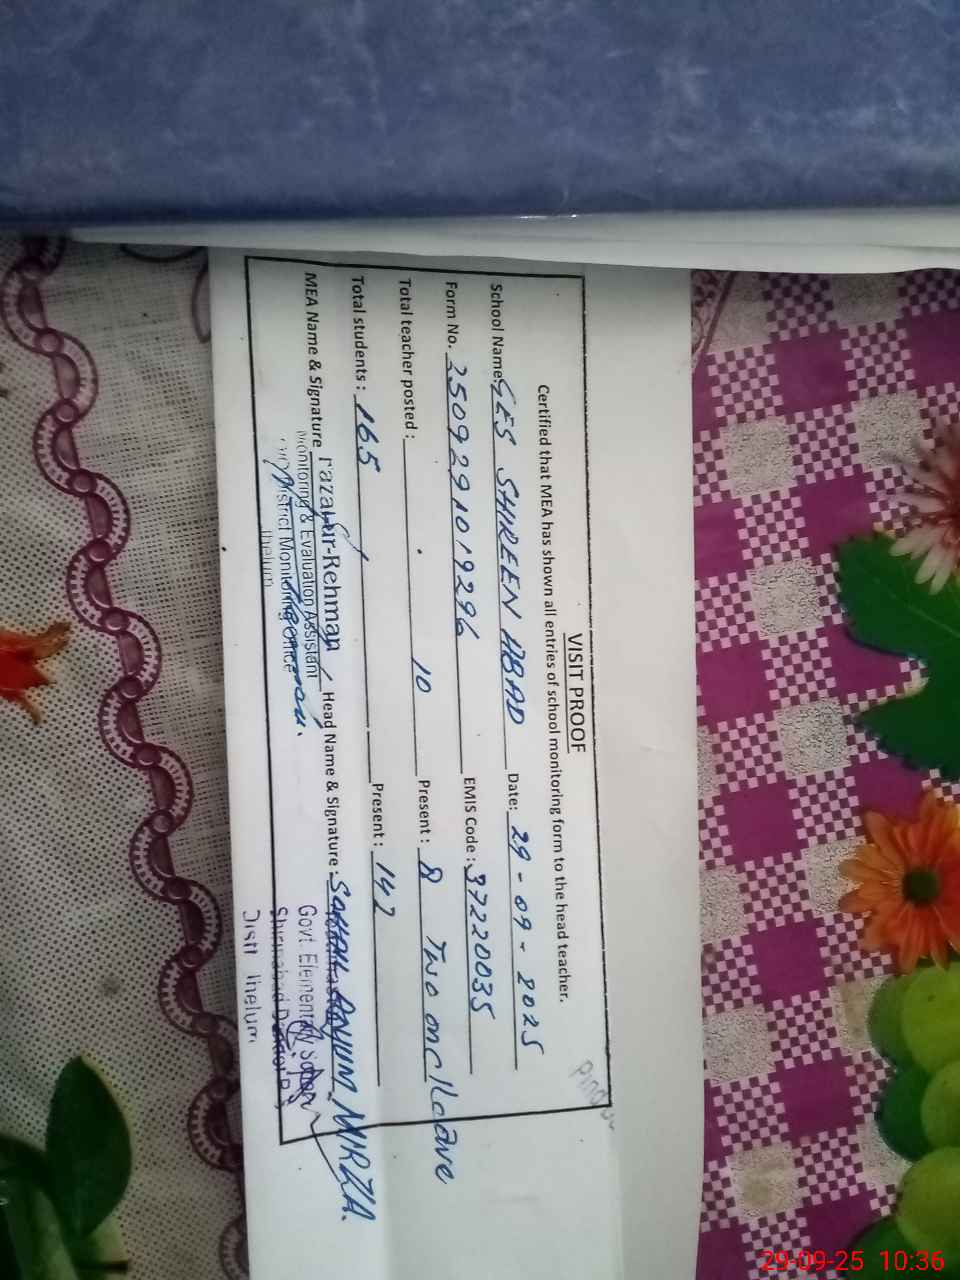 VISIT PROOF
Certified that MEA has shown all entries of school monitoring form to the head teacher.
School Name GES SHREEN ABAD Date: 29-09-2025
Form No. 2509291019296 EMIS Code: 37220035
Total teacher posted: 10 Present: 8 Two on c/leave
Total students: 165 Present: 147
MEA Name & Signature Fazal-ur-Rehman Head Name & Signature: MIRZA.
Monitoring & Evaluation Assistant
District Monitoring Office
Jhelum
Govt. Elementary School
Distt Jhelum
29-09-25 10:36